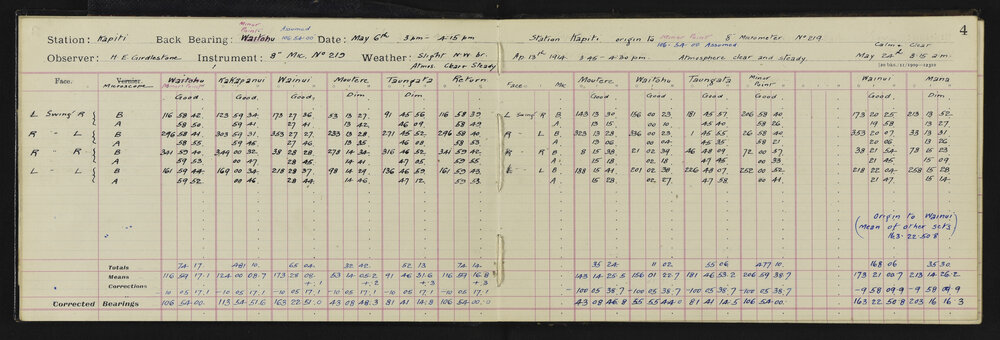 4
Minor Point Assumed
Station: Kapiti Back Bearing: Waitohu 106.54.00 Date: May 6th 3pm - 4.15pm
Station Kapiti origin to Minor Point 8" Micrometer No 219
106.54.00 Assumed
Calm & Clear
Observer: H E Girdlestone Instrument: 8" Mic. No 219 Weather: Slight N.W br. Atmos. Clear Steady
Ap 13th 1914 3.45 - 4.30 pm. Atmosphere clear and steady. May 24th 8.15 a.m.
Face. Vernier Microscope Waitohu Kakapanui Wainui Moutere Taungata Return Face Mic Moutere Waitohu Taungata Minor Point Wainui Mana
Good. Good. Good, Dim. Dim. Good. Good Good Good Good Good Good
L Swing R B 116 58 42 123 59 34 173 27 36 53 13 27 91 45 56 116 58 39 L Swing R B 143 13 30 156 00 23 181 45 57 206 58 40 173 20 25 213 13 52
A 58 50 59 41 27 41 13 42 46 09 58 49 A 13 15 00 10 45 40 58 26 19 58 13 27
R " L B 296 58 41 303 59 31 353 27 27 233 13 28 271 45 52 296 58 40 R - L B 323 13 28 336 00 23 1 45 55 26 58 40 353 20 07 33 13 31
A 58 55 59 45 27 46 13 35 46 08 58 53 A 13 06 00 04 45 35 58 21 20 06 13 26
R " R B 341 59 44 349 00 32 38 28 28 278 14 34 316 46 52 341 59 42 R - R B 8 15 38 21 02 39 46 48 09 72 00 57 38 21 54 78 15 23
A 59 53 00 47 28 45 14 41 47 05 59 55 A 15 18 02 18 47 45 00 33 21 45 15 09
L " L B 161 59 44 169 00 34 218 28 37 98 14 29 136 46 59 161 59 43 L - L B 188 15 41 201 02 38 226 48 07 252 00 52 218 22 04 258 15 28
A 59 52 00 46 28 44 14 46 47 12 59 53 A 15 28 02 27 47 58 00 41 21 47 15 14
(Origin to Wainui
mean of other sets)
163.22.50.8
Totals 74 17 481 10 65 04 32 42 52 13 74 14 35 24 11 02 55 06 477 10 168 06 35 30
Means 116 59 17.1 124 00 08.7 173 28 08. 53 14 05.2 91 46 31.6 116 59 16.8 143 14 25.5 156 01 22.7 181 46 53.2 206 59 38.7 173 21 00.7 213 14 26.2
Corrections + .1 + .2 + .3 + .3
-10 05 17.1 -10 05 17.1 -10 05 17.1 -10 05 17.1 -10 05 17.1 -10 05 17.1 -100 05 38.7 -100 05 38.7 -100 05 38.7 -100 05 38.7 -9 58 09.9 -9 58 09.9
Corrected Bearings 106 54.00. 113 54.51.6 163 22 51.0 43 08 48.3 81 41 14.8 106 54.00.0 43 08 46.8 55 55 44.0 81 41 14.5 106 54.00 163 22 50.8 203 16 16.3